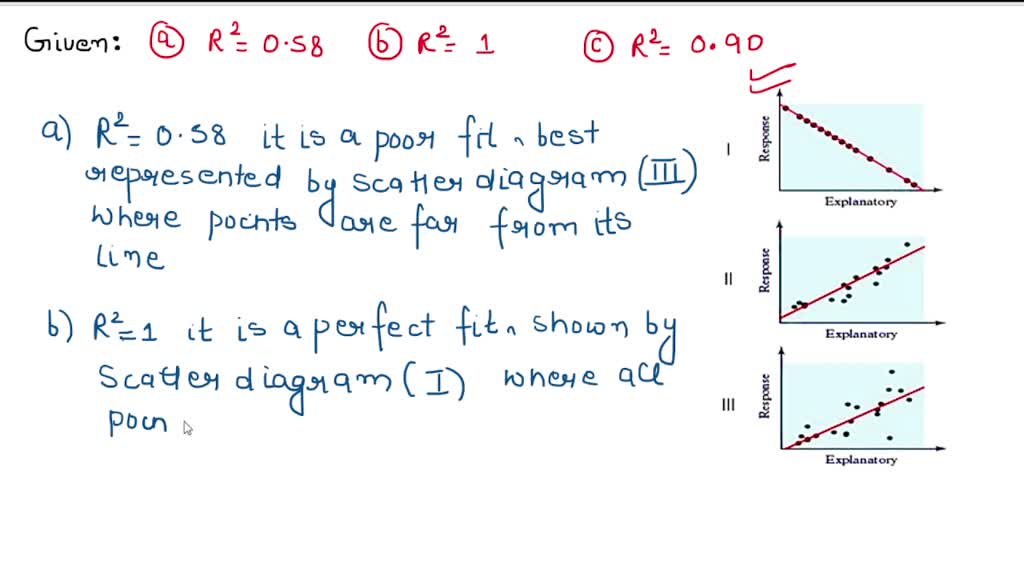 Given: (a) R²= 0.58 (b) R²= 1 (c) R²= 0.90
a) R²= 0.58 it is a poor fit, best
represented by scatter diagram (III)
where points are far from its
line
b) R²=1 it is a perfect fit, shown by
Scatter diagram (I) where all
poin
I
Response
Explanatory
II
Response
Explanatory
III
Response
Explanatory